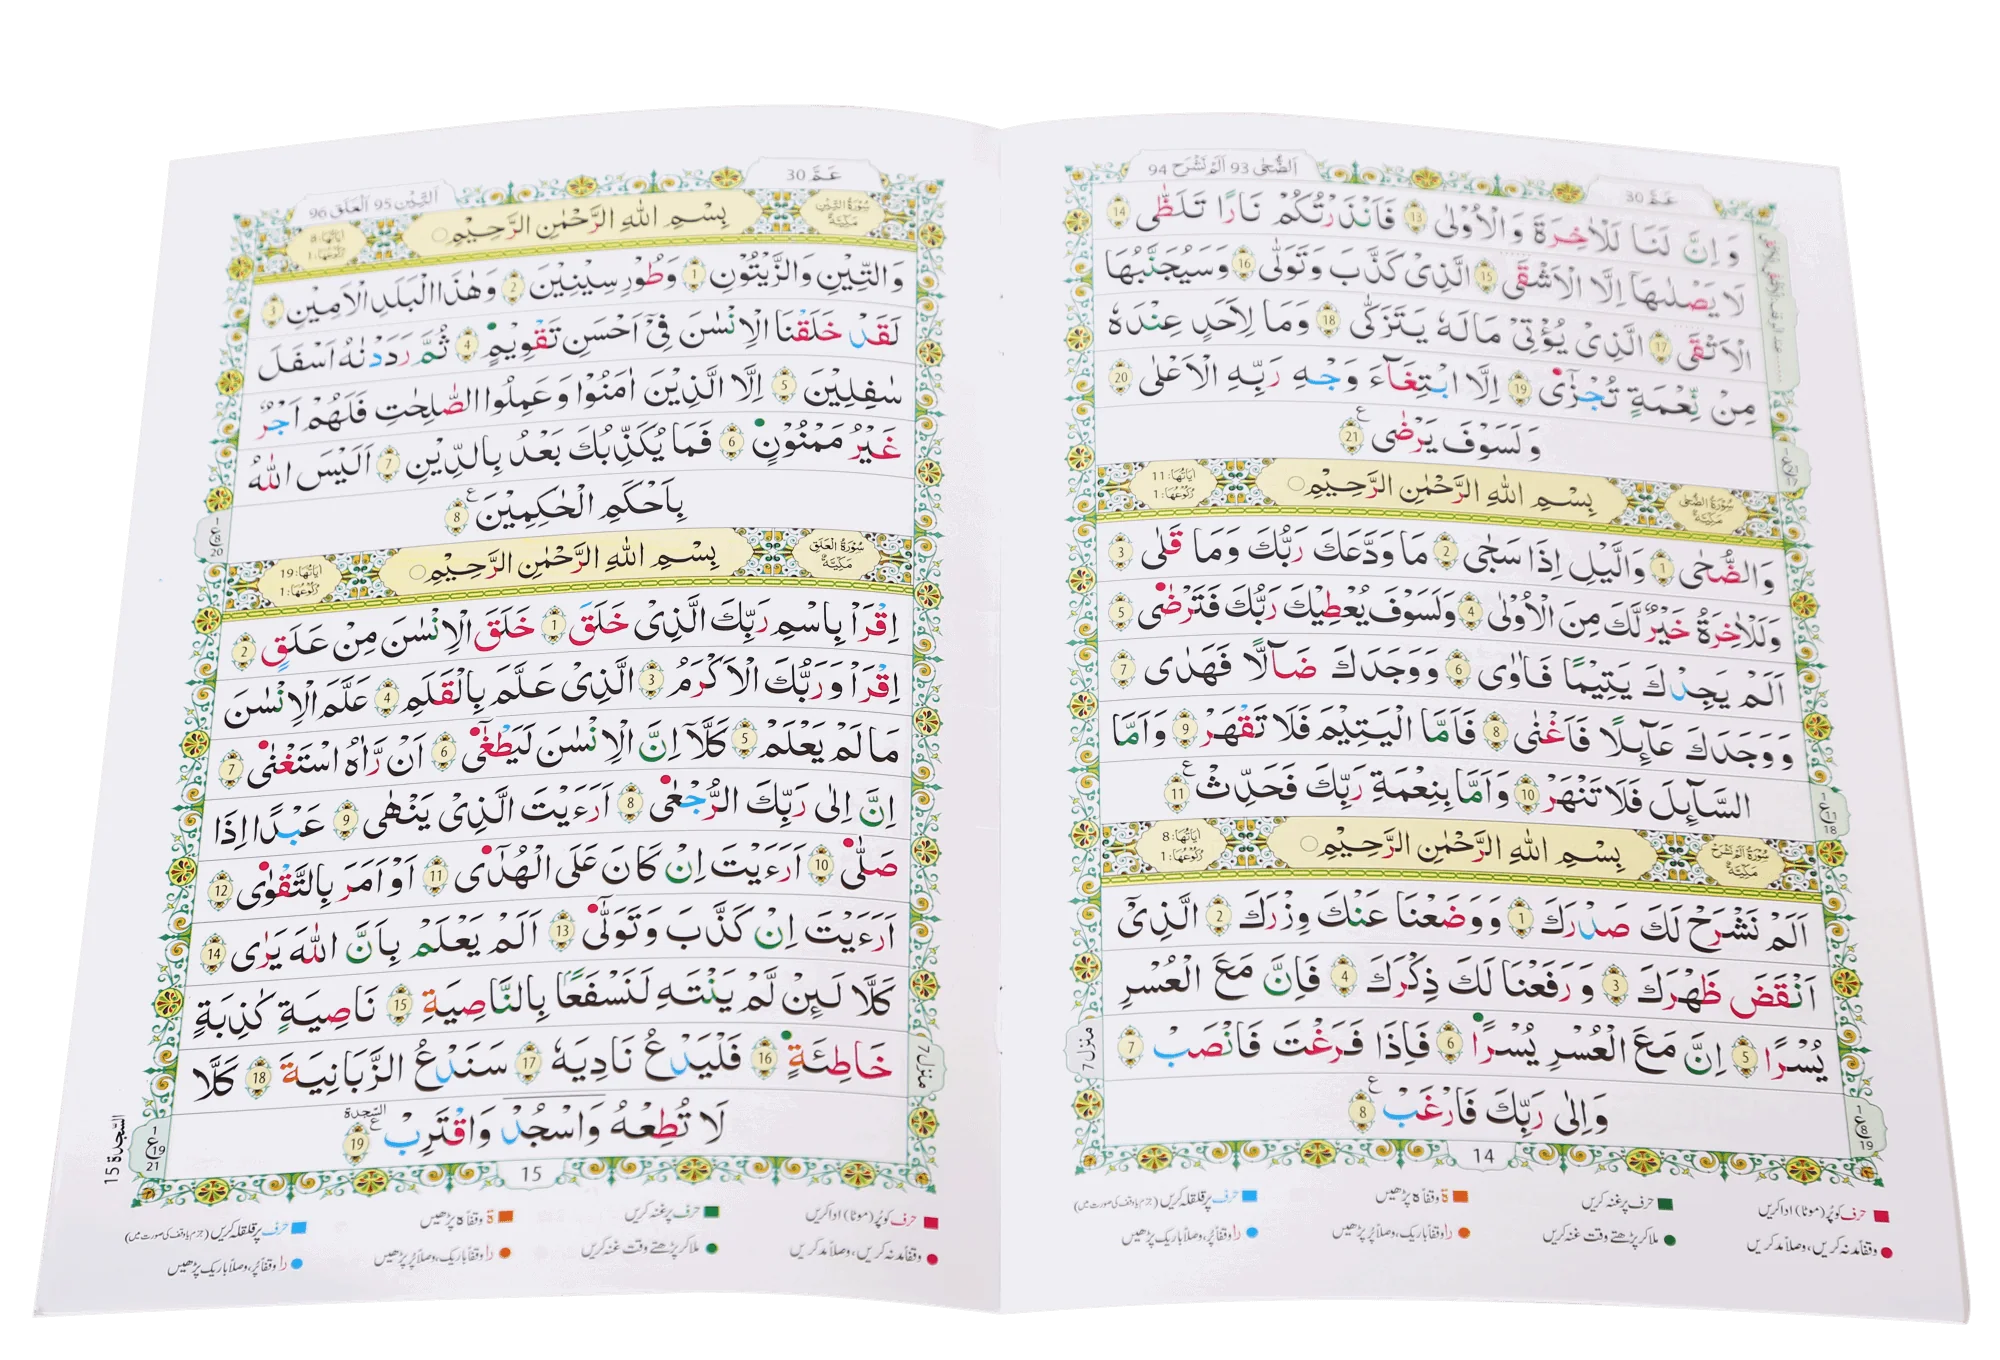 اَلضُّحٰى 93 اَلَمْ نَشْرَحْ 94
عَمَّ 30
وَ اِنَّ لَنَا لَلْاٰخِرَةَ وَ الْاُوْلٰى 13 فَاَنْذَرْتُكُمْ نَارًا تَلَظّٰى 14
لَا يَصْلٰىهَاۤ اِلَّا الْاَشْقَى 15 الَّذِىْ كَذَّبَ وَ تَوَلّٰى 16 وَ سَيُجَنَّبُهَا
الْاَتْقَى 17 الَّذِىْ يُؤْتِىْ مَالَهٗ يَتَزَكّٰى 18 وَ مَا لِاَحَدٍ عِنْدَهٗ
مِنْ نِّعْمَةٍ تُجْزٰٓى 19 اِلَّا ابْتِغَآءَ وَجْهِ رَبِّهِ الْاَعْلٰى 20
وَ لَسَوْفَ يَرْضٰى 21
سُوْرَةُ الضُّحٰى مَكِّيَّةٌ
بِسْمِ اللّٰهِ الرَّحْمٰنِ الرَّحِيْمِ
اٰيَاتُهَا: 11
رُكُوْعُهَا: 1
وَ الضُّحٰى 1 وَ الَّيْلِ اِذَا سَجٰى 2 مَا وَدَّعَكَ رَبُّكَ وَ مَا قَلٰى 3
وَ لَلْاٰخِرَةُ خَيْرٌ لَّكَ مِنَ الْاُوْلٰى 4 وَ لَسَوْفَ يُعْطِيْكَ رَبُّكَ فَتَرْضٰى 5
اَلَمْ يَجِدْكَ يَتِيْمًا فَاٰوٰى 6 وَ وَجَدَكَ ضَآلًّا فَهَدٰى 7
وَ وَجَدَكَ عَآئِلًا فَاَغْنٰى 8 فَاَمَّا الْيَتِيْمَ فَلَا تَقْهَرْ 9 وَ اَمَّا
السَّآئِلَ فَلَا تَنْهَرْ 10 وَ اَمَّا بِنِعْمَةِ رَبِّكَ فَحَدِّثْ 11
ع 1 11 18
سُوْرَةُ اَلَمْ نَشْرَحْ مَكِّيَّةٌ
بِسْمِ اللّٰهِ الرَّحْمٰنِ الرَّحِيْمِ
اٰيَاتُهَا: 8
رُكُوْعُهَا: 1
اَلَمْ نَشْرَحْ لَكَ صَدْرَكَ 1 وَ وَضَعْنَا عَنْكَ وِزْرَكَ 2 الَّذِىْۤ
اَنْقَضَ ظَهْرَكَ 3 وَ رَفَعْنَا لَكَ ذِكْرَكَ 4 فَاِنَّ مَعَ الْعُسْرِ
يُسْرًا 5 اِنَّ مَعَ الْعُسْرِ يُسْرًا 6 فَاِذَا فَرَغْتَ فَانْصَبْ 7
منزل 7
وَ اِلٰى رَبِّكَ فَارْغَبْ 8
ع 1 8 19
14
حرف کو پُر (موٹا) ادا کریں
حرف پر غنہ کریں
ۃ وقفاً ہ پڑھیں
حرف پر قلقلہ کریں (جزم یا وقف کی صورت میں)
وقفاً مد نہ کریں، وصلاً مد کریں
ملا کر پڑھتے وقت غنہ کریں
را وقفاً باریک، وصلاً پُر پڑھیں
را وقفاً پُر، وصلاً باریک پڑھیں
اَلتِّيْن 95 اَلْعَلَق 96
عَمَّ 30
سُوْرَةُ التِّيْنِ مَكِّيَّةٌ
بِسْمِ اللّٰهِ الرَّحْمٰنِ الرَّحِيْمِ
اٰيَاتُهَا: 8
رُكُوْعُهَا: 1
وَ التِّيْنِ وَ الزَّيْتُوْنِ 1 وَ طُوْرِ سِيْنِيْنَ 2 وَ هٰذَا الْبَلَدِ الْاَمِيْنِ 3
لَقَدْ خَلَقْنَا الْاِنْسٰنَ فِىْۤ اَحْسَنِ تَقْوِيْمٍ 4 ثُمَّ رَدَدْنٰهُ اَسْفَلَ
سٰفِلِيْنَ 5 اِلَّا الَّذِيْنَ اٰمَنُوْا وَ عَمِلُوا الصّٰلِحٰتِ فَلَهُمْ اَجْرٌ
غَيْرُ مَمْنُوْنٍ 6 فَمَا يُكَذِّبُكَ بَعْدُ بِالدِّيْنِ 7 اَلَيْسَ اللّٰهُ
بِاَحْكَمِ الْحٰكِمِيْنَ 8
ع 1 8 20
سُوْرَةُ الْعَلَقِ مَكِّيَّةٌ
بِسْمِ اللّٰهِ الرَّحْمٰنِ الرَّحِيْمِ
اٰيَاتُهَا: 19
رُكُوْعُهَا: 1
اِقْرَاْ بِاسْمِ رَبِّكَ الَّذِىْ خَلَقَ 1 خَلَقَ الْاِنْسٰنَ مِنْ عَلَقٍ 2
اِقْرَاْ وَ رَبُّكَ الْاَكْرَمُ 3 الَّذِىْ عَلَّمَ بِالْقَلَمِ 4 عَلَّمَ الْاِنْسٰنَ
مَا لَمْ يَعْلَمْ 5 كَلَّاۤ اِنَّ الْاِنْسٰنَ لَيَطْغٰٓى 6 اَنْ رَّاٰهُ اسْتَغْنٰى 7
اِنَّ اِلٰى رَبِّكَ الرُّجْعٰى 8 اَرَءَيْتَ الَّذِىْ يَنْهٰى 9 عَبْدًا اِذَا
صَلّٰى 10 اَرَءَيْتَ اِنْ كَانَ عَلَى الْهُدٰٓى 11 اَوْ اَمَرَ بِالتَّقْوٰى 12
اَرَءَيْتَ اِنْ كَذَّبَ وَ تَوَلّٰى 13 اَلَمْ يَعْلَمْ بِاَنَّ اللّٰهَ يَرٰى 14
كَلَّا لَئِنْ لَّمْ يَنْتَهِ لَنَسْفَعًۢا بِالنَّاصِيَةِ 15 نَاصِيَةٍ كَاذِبَةٍ
خَاطِئَةٍ 16 فَلْيَدْعُ نَادِيَهٗ 17 سَنَدْعُ الزَّبَانِيَةَ 18 كَلَّا
منزل 7
لَا تُطِعْهُ وَ اسْجُدْ وَ اقْتَرِبْ 19
السّجدة
ع 1 19 21
السّجدة 15
15
حرف کو پُر (موٹا) ادا کریں
حرف پر غنہ کریں
ۃ وقفاً ہ پڑھیں
حرف پر قلقلہ کریں (جزم یا وقف کی صورت میں)
وقفاً مد نہ کریں، وصلاً مد کریں
ملا کر پڑھتے وقت غنہ کریں
را وقفاً باریک، وصلاً پُر پڑھیں
را وقفاً پُر، وصلاً باریک پڑھیں